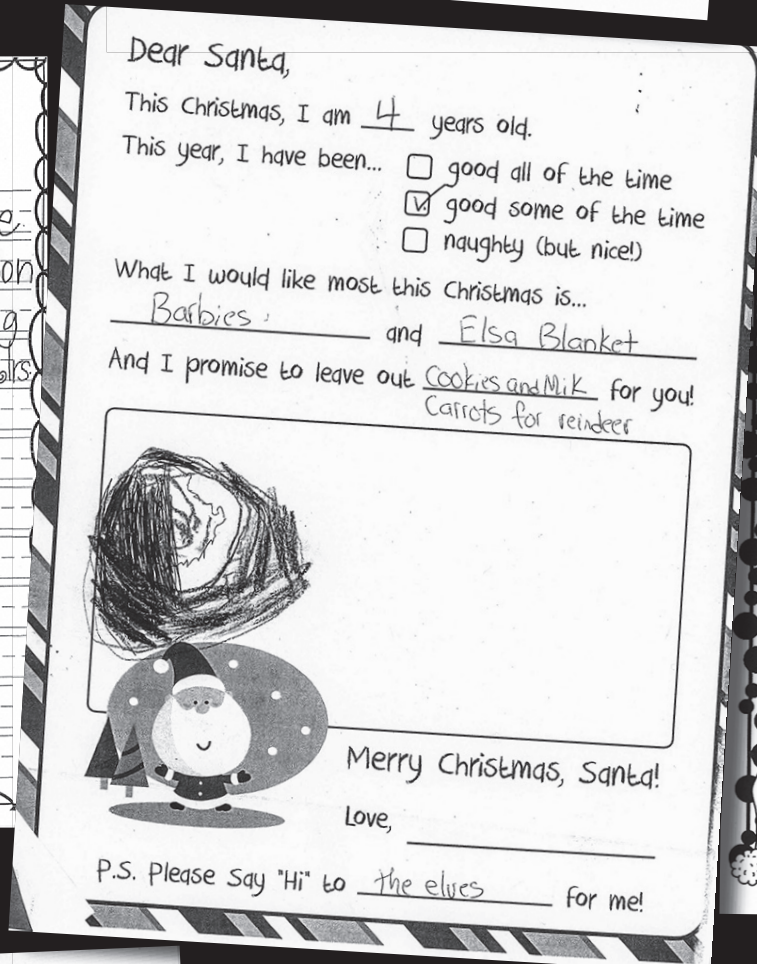 Dear Santa,
This Christmas, I am 4 years old.
This year, I have been... good all of the time
good some of the time
naughty (but nice!)
What I would like most this Christmas is...
Barbies and Elsa Blanket
And I promise to leave out Cookies and Milk for you!
Carrots for reindeer
Merry Christmas, Santa!
Love,
P.S. Please Say "Hi" to the elves for me!
e
on
g